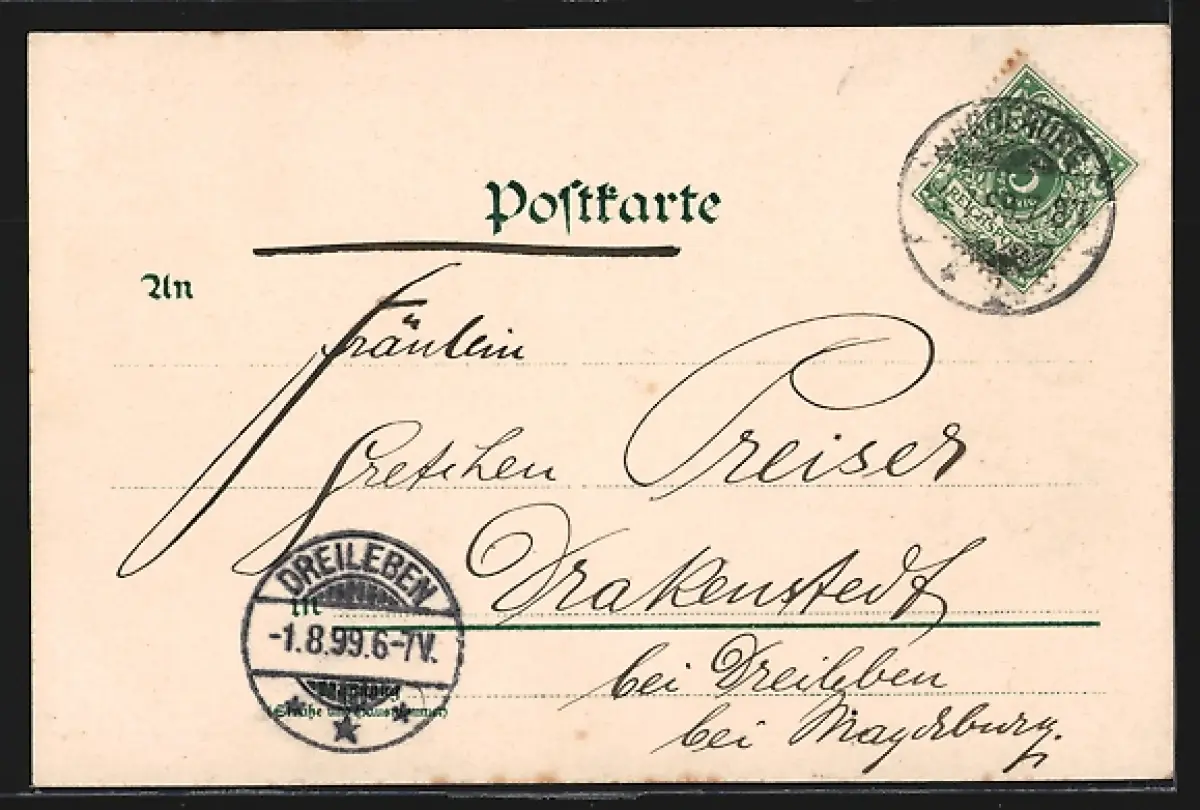 Postkarte
An
REICHSPOST
Fräulein
Gretchen Preiser
in Drakenstedt
DREILEBEN
-1.8.99.6-7V.
bei Dreileben
Wohnung
(Straße und Hausnummer)
bei Magdeburg.